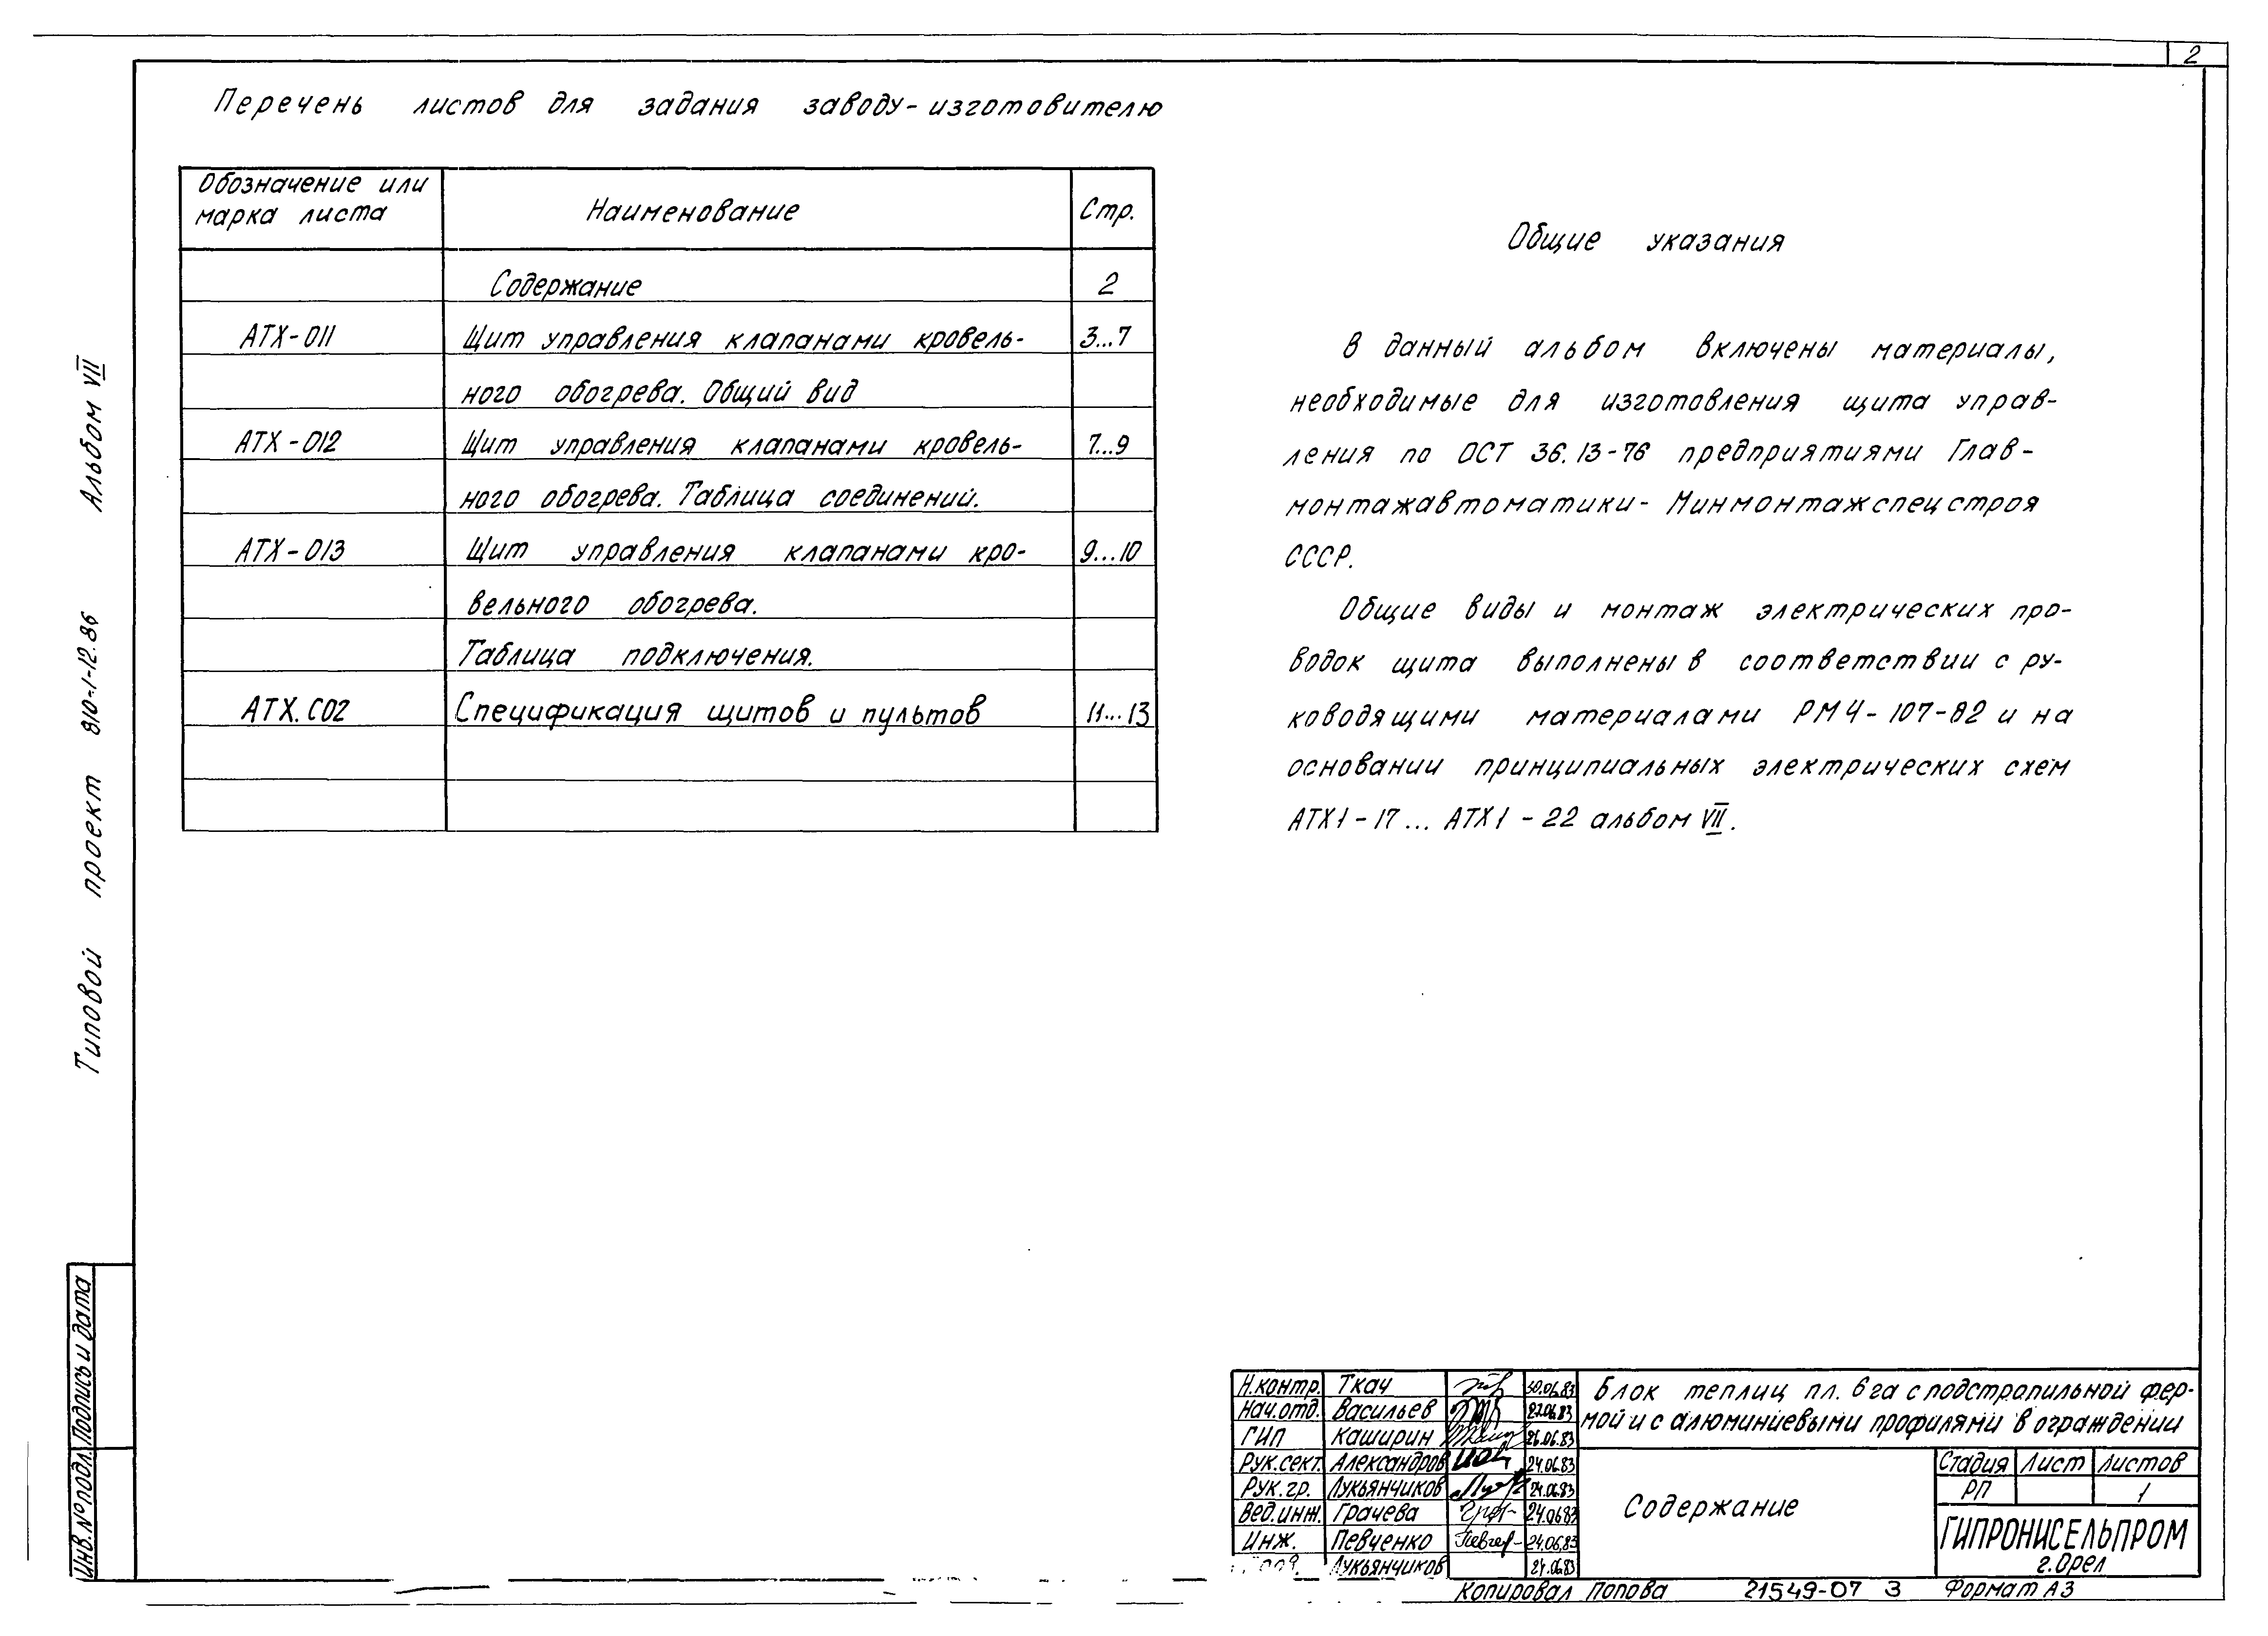 2
Перечень листов для задания заводу-изготовителю
Обозначение или
марка листа
Наименование
Стр.
Содержание
2
АТХ-011
Щит управления клапанами кровель-
3...7
ного обогрева. Общий вид
АТХ-012
Щит управления клапанами кровель-
7...9
ного обогрева. Таблица соединений.
АТХ-013
Щит управления клапанами кро-
9...10
вельного обогрева.
Таблица подключения.
АТХ.С02
Спецификация щитов и пультов
11...13
Общие указания
В данный альбом включены материалы,
необходимые для изготовления щита управ-
ления по ОСТ 36.13-76 предприятиями Глав-
монтажавтоматики- Минмонтажспецстроя
СССР.
Общие виды и монтаж электрических про-
водок щита выполнены в соответствии с ру-
ководящими материалами РМ4-107-82 и на
основании принципиальных электрических схем
АТХ1-17... АТХ1-22 альбом VII.
Типовой проект 810-1-12.86 Альбом VII
Инв.№подл.
Подпись и дата
Н.контр. Ткач 30.06.83
Нач.отд. Васильев 27.06.83
ГИП Каширин 26.06.83
Рук.сект. Александров 24.06.83
Рук.гр. Лукьянчиков 24.06.83
Вед.инж. Грачева 24.06.83
Инж. Певченко 24.06.83
Лукьянчиков 24.06.83
Блок теплиц пл. 6га с подстропильной фер-
мой и с алюминиевыми профилями в ограждении
Содержание
Стадия Лист Листов
РП 1
ГИПРОНИСЕЛЬПРОМ
г.Орел
Копировал Попова 21549-07 3 Формат А3